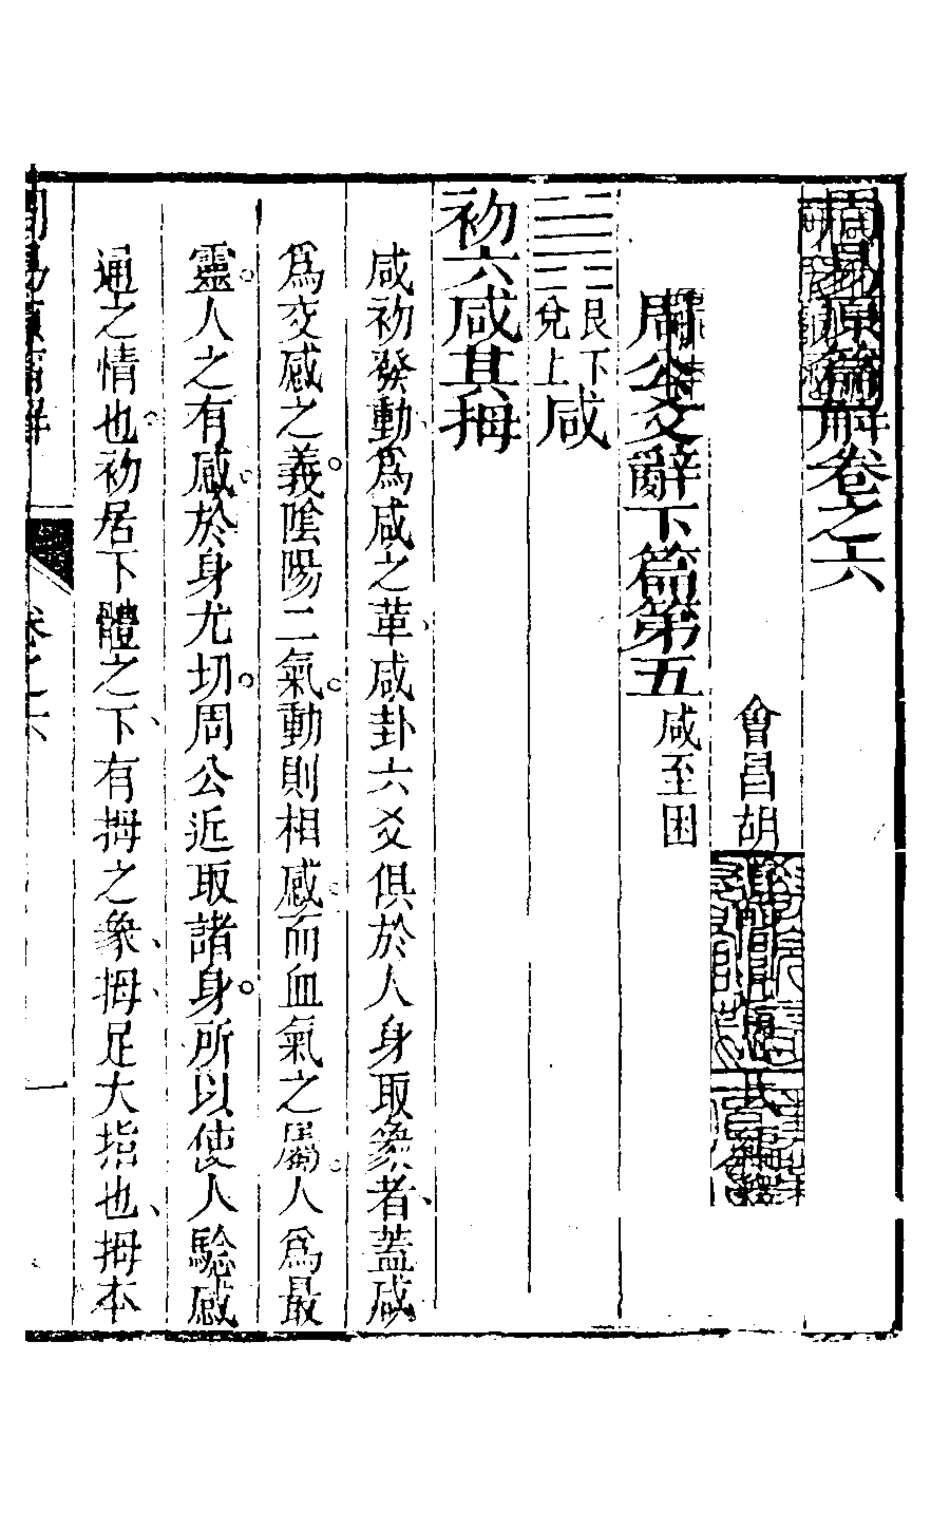 周易原篇解卷之六
會昌胡
周公爻辭下篇第五咸至困
艮下兌上咸
初六咸其拇
咸初發動爲咸之革咸卦六爻俱於人身取象者蓋咸
爲交感之義陰陽二氣動則相感而血氣之屬人爲最
靈人之有感於身尤切周公近取諸身所以使人驗感
通之情也初居下體之下有拇之象拇足大指也拇本
卷之六
一